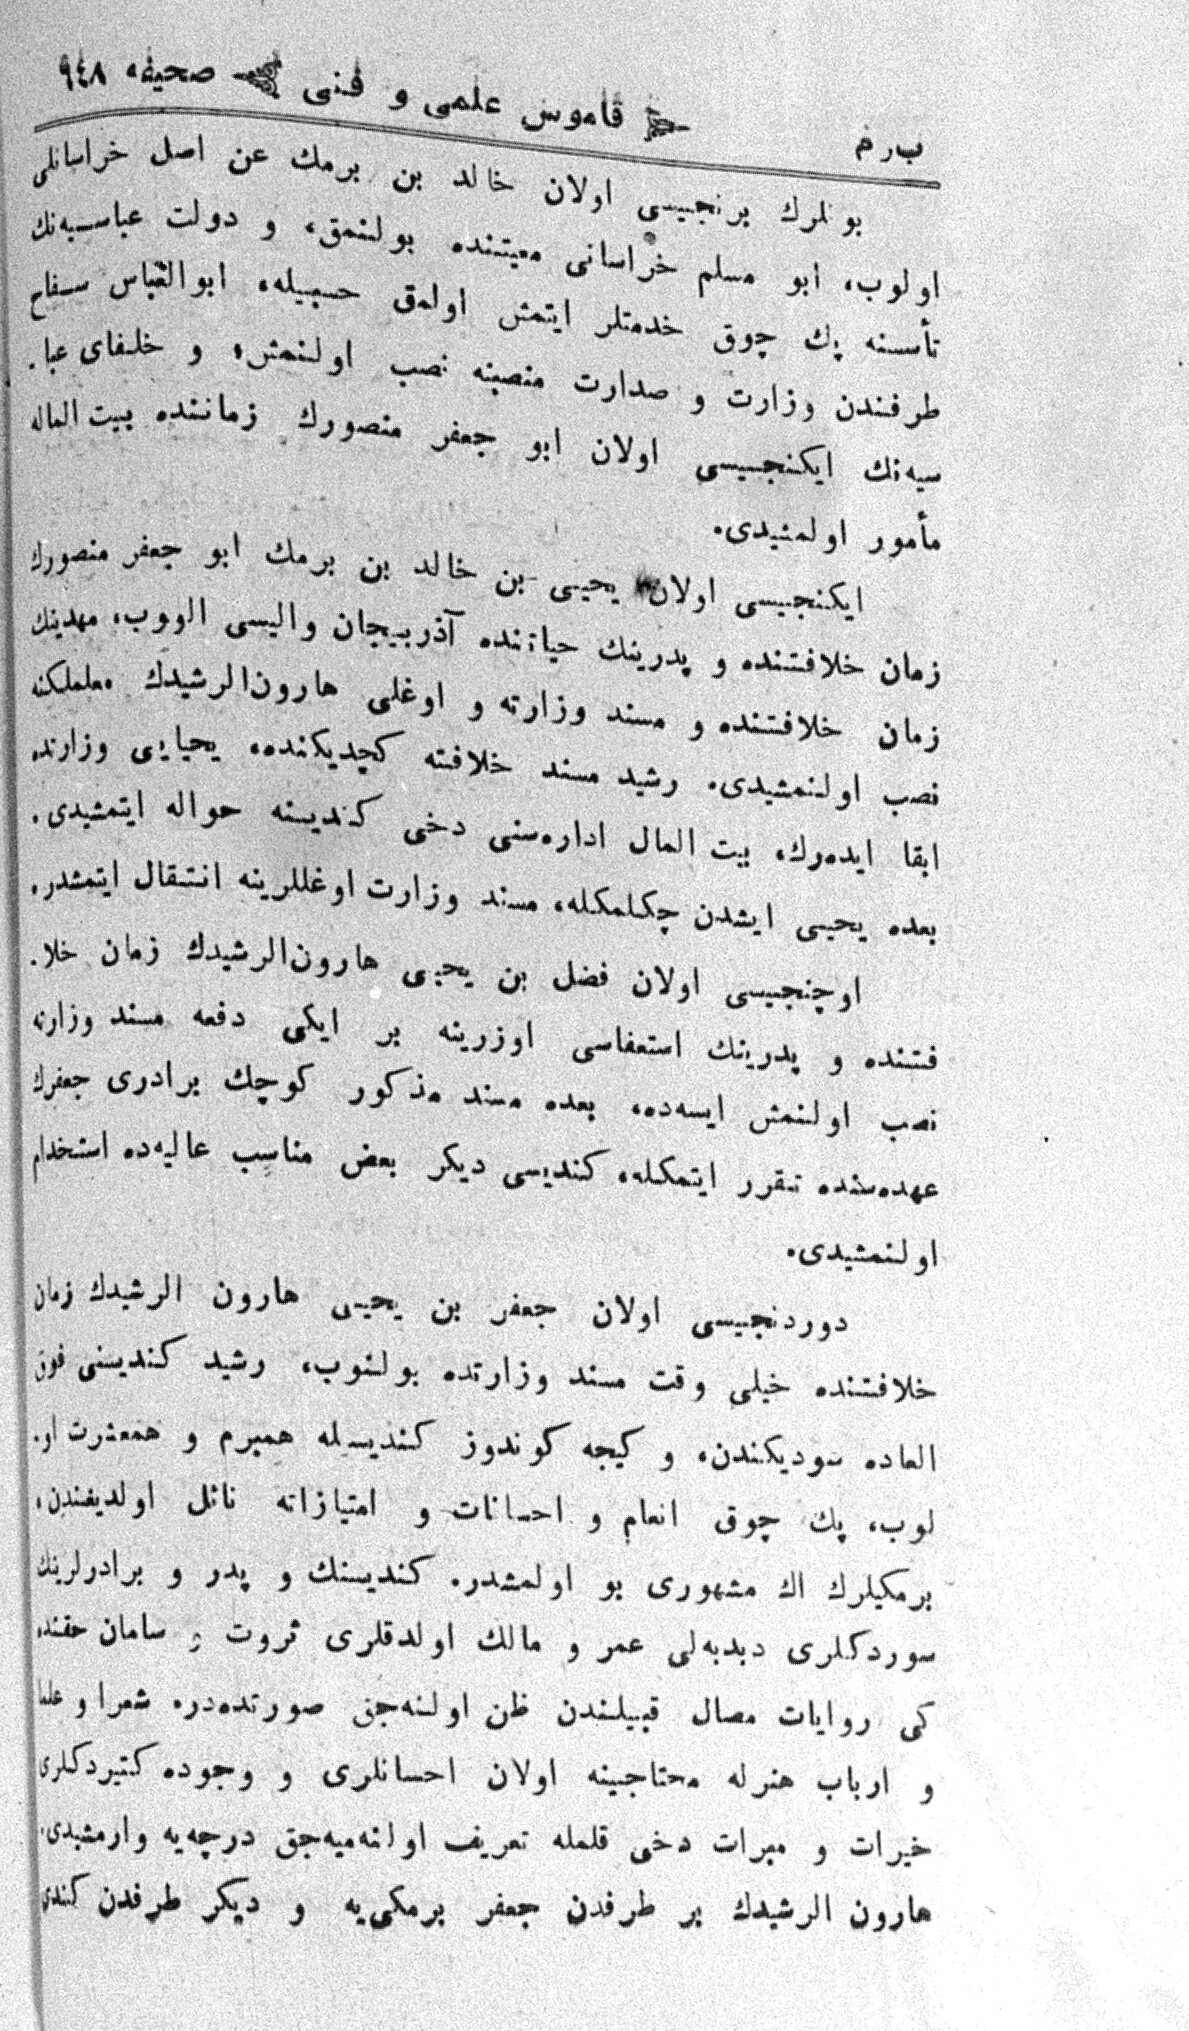 ب ر م ﴿ قاموس علمی و فنی ﴾ صحیفه ٩٤٨
بونلرك برنجیسی اولان خالد بن برمك عن اصل خراسانلی
اولوب، ابو مسلم خراسانی معیتنده بولنمق، و دولت عباسیه‌نك
تأسسنه پك چوق خدمتلر ایتمش اولمق حسبیله، ابوالعباس سفاح
طرفندن وزارت و صدارت منصبنه نصب اولنمش، و خلفای عبا.
سیه‌نك ایكنجیسی اولان ابو جعفر منصورك زماننده بیت الماله
مأمور اولمشیدی.
ایكنجیسی اولان یحیی بن خالد بن برمك ابو جعفر منصورك
زمان خلافتنده و پدرینك حیاتنده آذربیجان والیسی الووب، مهدینك
زمان خلافتنده و مسند وزارته و اوغلی هارون‌الرشیدك معلملكنه
نصب اولنمشیدی. رشید مسند خلافته كچدیكنده، یحیایی وزارتده
ابقا ایده‌رك، بیت المال اداره‌سنی دخی كندیسنه حواله ایتمشیدی.
بعده یحیی ایشدن چكلمكله، مسند وزارت اوغللرینه انتقال ایتمشدر.
اوچنجیسی اولان فضل بن یحیی هارون‌الرشیدك زمان خلا.
فتنده و پدرینك استعفاسی اوزرینه بر ایكی دفعه مسند وزارته
نصب اولنمش ایسه‌ده، بعده مسند مذكور كوچك برادری جعفرك
عهده‌سنده تقرر ایتمكله، كندیسی دیكر بعض مناسب عالیه‌ده استخدام
اولنمشیدی.
دوردنجیسی اولان جعفر بن یحیی هارون الرشیدك زمان
خلافتنده خیلی وقت مسند وزارتده بولنوب، رشید كندیسنی فوق
العاده سودیكندن، و كیجه كوندوز كندیسیله همبزم و همعشرت او.
لوب، پك چوق انعام و احسانات و امتیازاته نائل اولدیغندن،
برمكیلرك اك مشهوری بو اولمشدر. كندیسنك و پدر و برادرلرینك
سوردكلری دبدبه‌لی عمر و مالك اولدقلری ثروت و سامان حقنده
كی روایات مصال قبیلندن ظن اولنه‌جق صورتده‌در. شعرا و علما
و ارباب هنرله محتاجینه اولان احسانلری و وجوده كتیردكلری
خیرات و مبرات دخی قلمله تعریف اولنه‌میه‌جق درجه‌یه وارمشیدی.
هارون الرشیدك بر طرفدن جعفر برمكی‌یه و دیكر طرفدن كندی